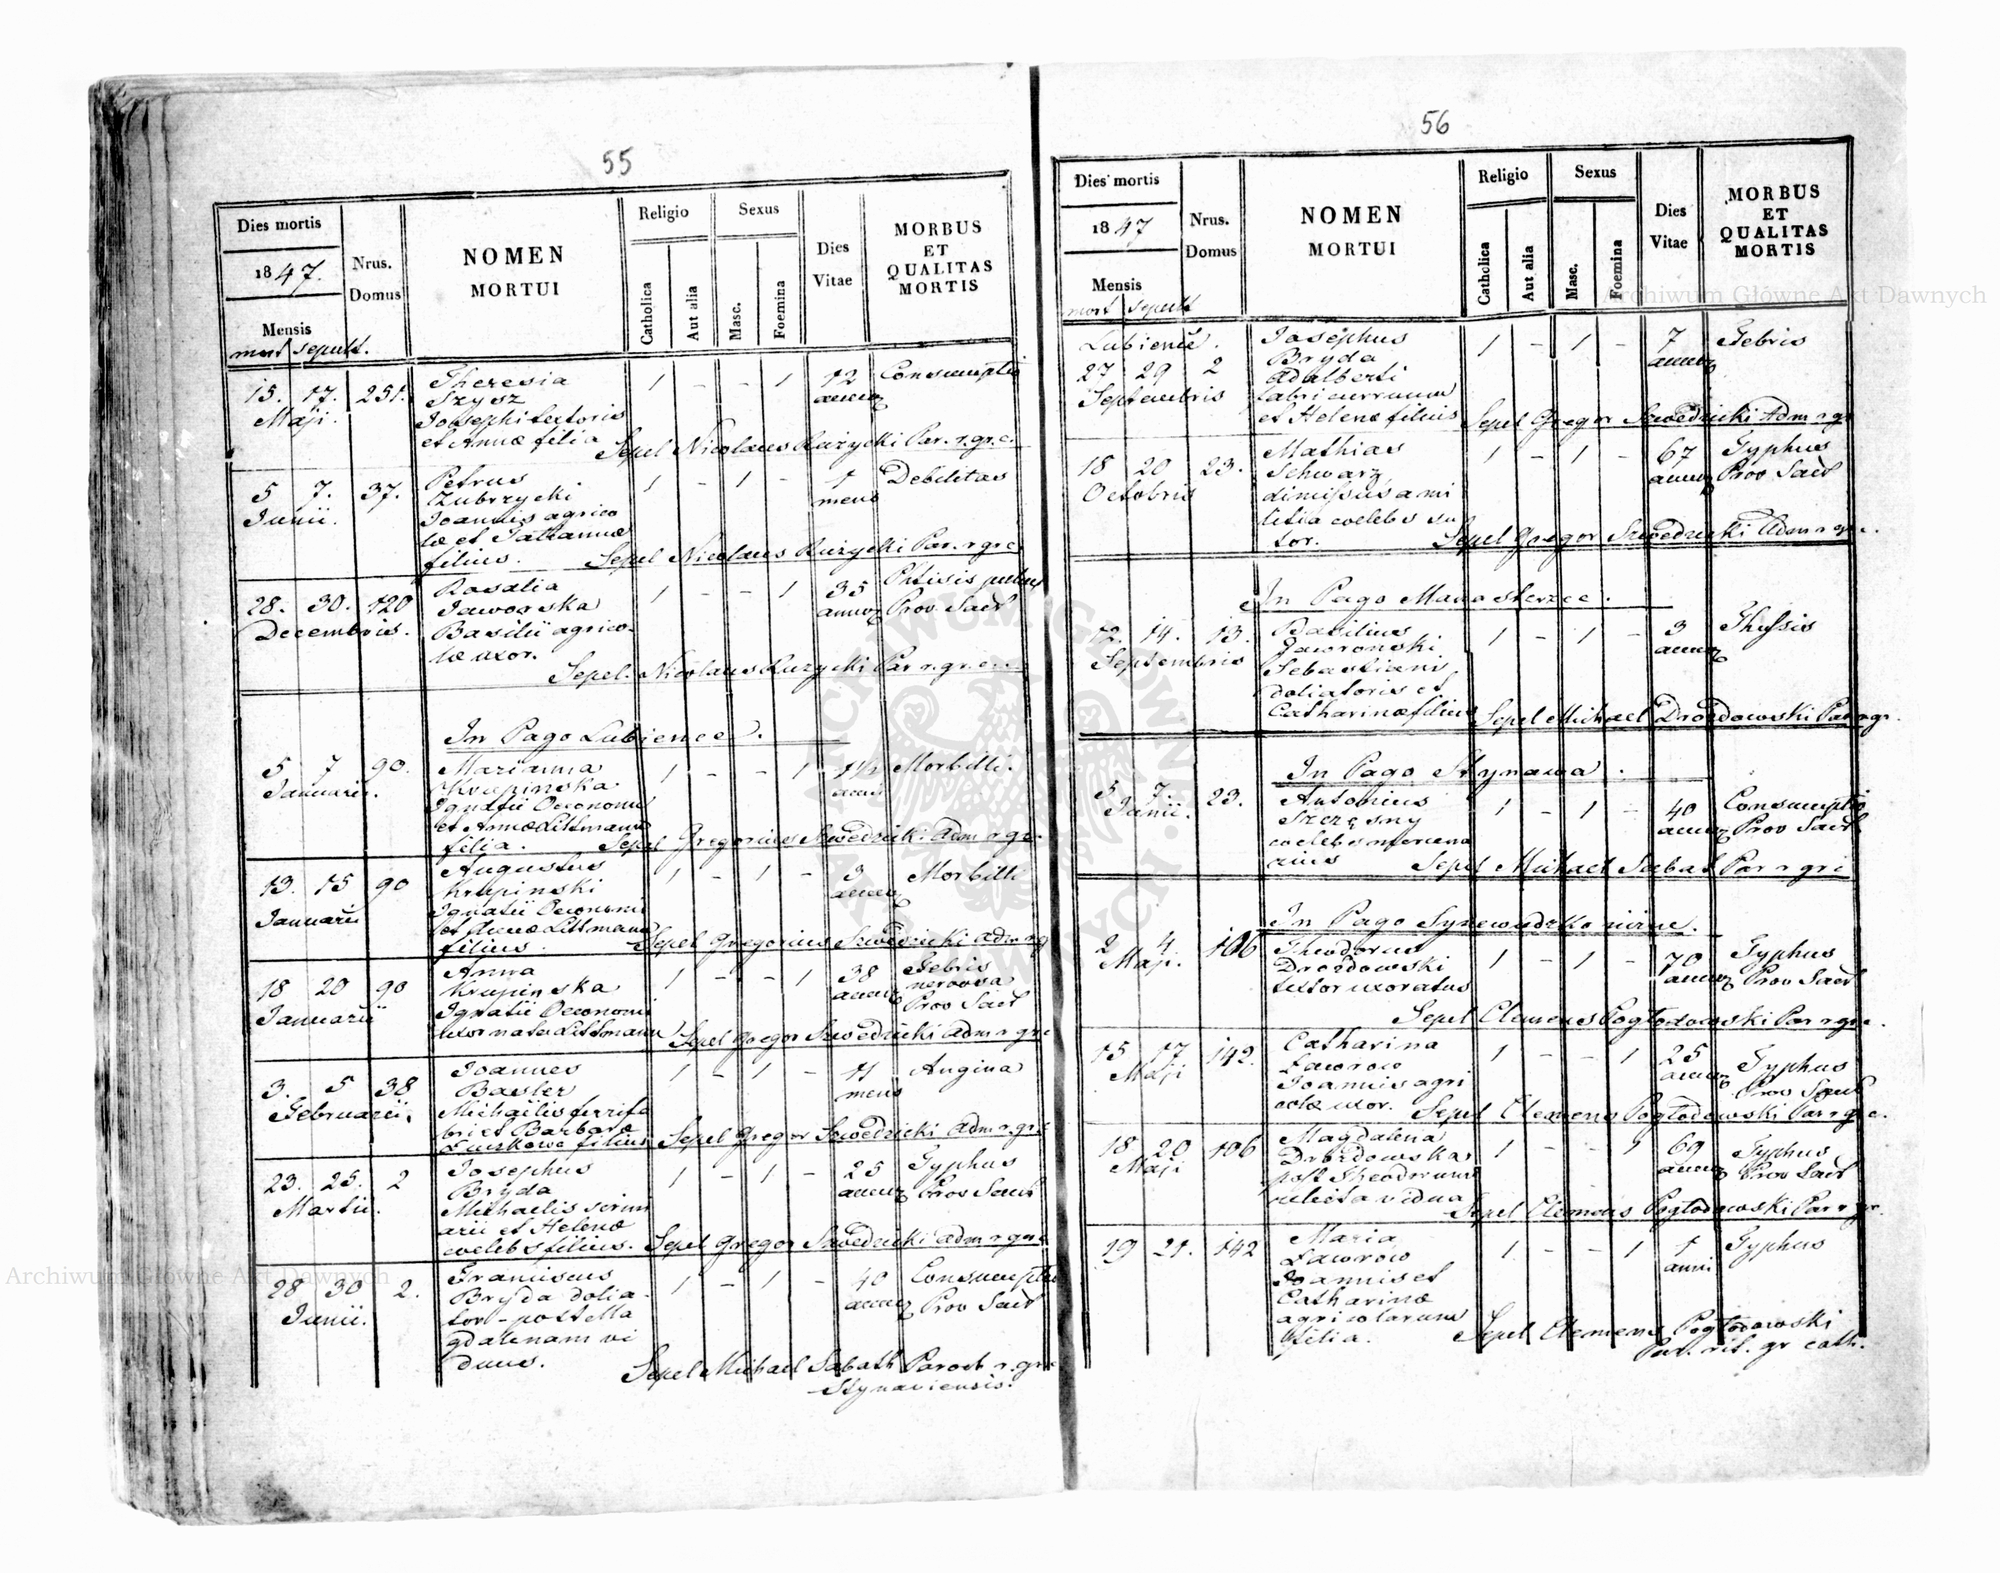 55
Dies mortis
1847.
Mensis
mort sepult.
Nrus.
Domus
NOMEN
MORTUI
Religio
Catholica
Aut alia
Sexus
Masc.
Foemina
Dies
Vitae
MORBUS
ET
QUALITAS
MORTIS
15. 17. 251. Theresia 1 - - 1 12 Consumptio
Maji. Szysz annor
Josephi textoris
et Annæ filia
Sepel Nicolaus Ruzycki Par. r. gr. c.
5 7. 37. Petrus 1 - 1 - 1 Debilitas
Junii. Zubrzycki mens
Joannis agrico
læ et Tatiannæ
filius. Sepel Nicolaus Ruzycki Par. r gr c
28. 30. 120 Rosalia 1 - - 1 35 Phtisis pulm
Decembris. Jaworska annor Prov Sacr
Basilii agrico-
læ uxor.
Sepel. Nicolaus Ruzycki Par r. gr. c.
In Pago Lubience.
5 7 90. Marianna 1 - - 1 1½ Morbilli.
Januarii. Krupinska anni
Ignatii Oeconomi
et Annæ Littmann
filia. Sepel Gregorius Szwedzicki Adm r gr.
13. 15 90 Augustus 1 - 1 - 3 Morbilli
Januarii Krupinski annor
Ignatii Oeconomi
et Annæ Littmann
filius. Sepel Gregorius Szwedzicki Adm r g
18 20 90 Anna 1 - - 1 38 Febris
Januarii Krupinska annor nervosa
Ignatii Oeconomi Prov Sacr
uxor nata Littmann Sepel Gregor Szwedzicki Adm r gr c
3. 5 38 Joannes 1 - 1 - 11 Angina
Februarii. Basler mens
Michaelis ferrifa
bri et Barbara
filius Sepel Gregor Szwedzicki Adm r. gr c
23. 25. 2 Josephus 1 - 1 - 25 Typhus
Martii. Bryda annor Prov Sacr
Michaelis scrini
arii et Helenæ
coelebs filius. Sepel Gregor Szwedzicki Adm r gr c
28 30 2. Franciscus 1 - 1 - 40 Consumptio
Junii. Bryda dolia- annor Prov Sacr
tor - post Ma
gdalenam vi
duus.
Sepel Michael Sabath Paroch r. gr.
Stynaviensis.
56
Dies mortis
1847
Mensis
mort sepult
Nrus.
Domus
NOMEN
MORTUI
Religio
Catholica
Aut alia
Sexus
Masc.
Foemina
Dies
Vitae
MORBUS
ET
QUALITAS
MORTIS
Lubience. Josephus 1 - 1 - 7 Febris
27 29 2 Bryda annor
Septembris Adalberti
fabri currum
et Helenæ filius Sepel Gregor Szwedzicki Adm r gr
18 20 23. Mathias 1 - 1 - 67 Typhus
Octobris Schwarz annor Prov Sacr
dimissus a mi
litia coelebs su
tor. Sepel Gregor Szwedzicki Adm r gr c.
In Pago Manasterzec.
12. 14. 13. Basilius 1 - 1 - 3 Thussis
Septembris Jaworonski annor
Sebastiani
doliatoris et
Catharinæ filius Sepel Michael Drozdowski Par r gr.
In Pago Stynawa.
5 7. 23. Antonius 1 - 1 - 40 Consumptio
Junii. Szczęsny annor Prov Sacr
coelebs mercena
rius Sepel Michael Sabat Par r gr c
In Pago Synewudzko niżne.
2 4. 106 Theodorus 1 - 1 - 70 Typhus
Maji. Drozdowski annor Prov Sacr
textor uxoratus
Sepel Clemens Pogłodowski Par r gr c.
15 17 142. Catharina 1 - - 1 25 Typhus
Maji Lawrow annor Prov Sacr
Joannis agri
colæ uxor. Sepel Clemens Pogłodowski Par r g c.
18 20 106 Magdalena 1 - - 1 69 Typhus
Maji Drozdowska annor Prov Sacr
post Theodorum
relicta vidua
Sepel Clemens Pogłodowski Par r gr.
19 21. 142 Maria 1. - - 1 1 Typhus
Lawrow anni
Joannis et
Catharinæ
agricolarum
filia. Sepel Clemens Pogłodowski
Par. rit. gr cath.
Archiwum Główne Akt Dawnych
Archiwum Główne Akt Dawnych
ARCHIWUM GŁÓWNE AKT DAWNYCH